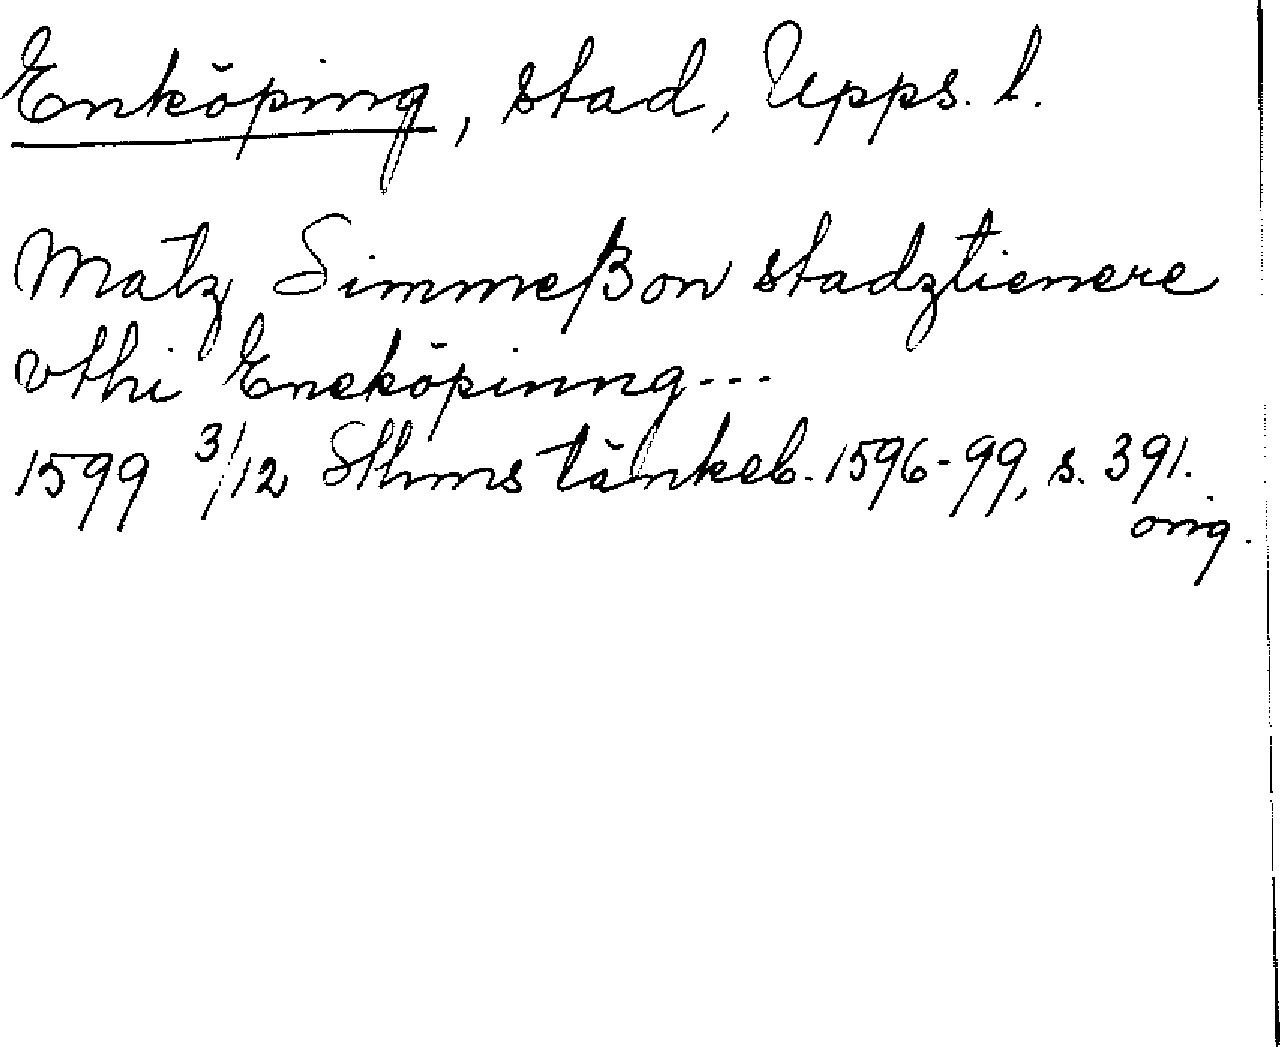 Enköping, stad, Upps. l.
Matz Simmeßon stadztienere
vthi Eneköpinng---
1599 3/12 Sthms tänkeb. 1596-99, s. 391.
orig.